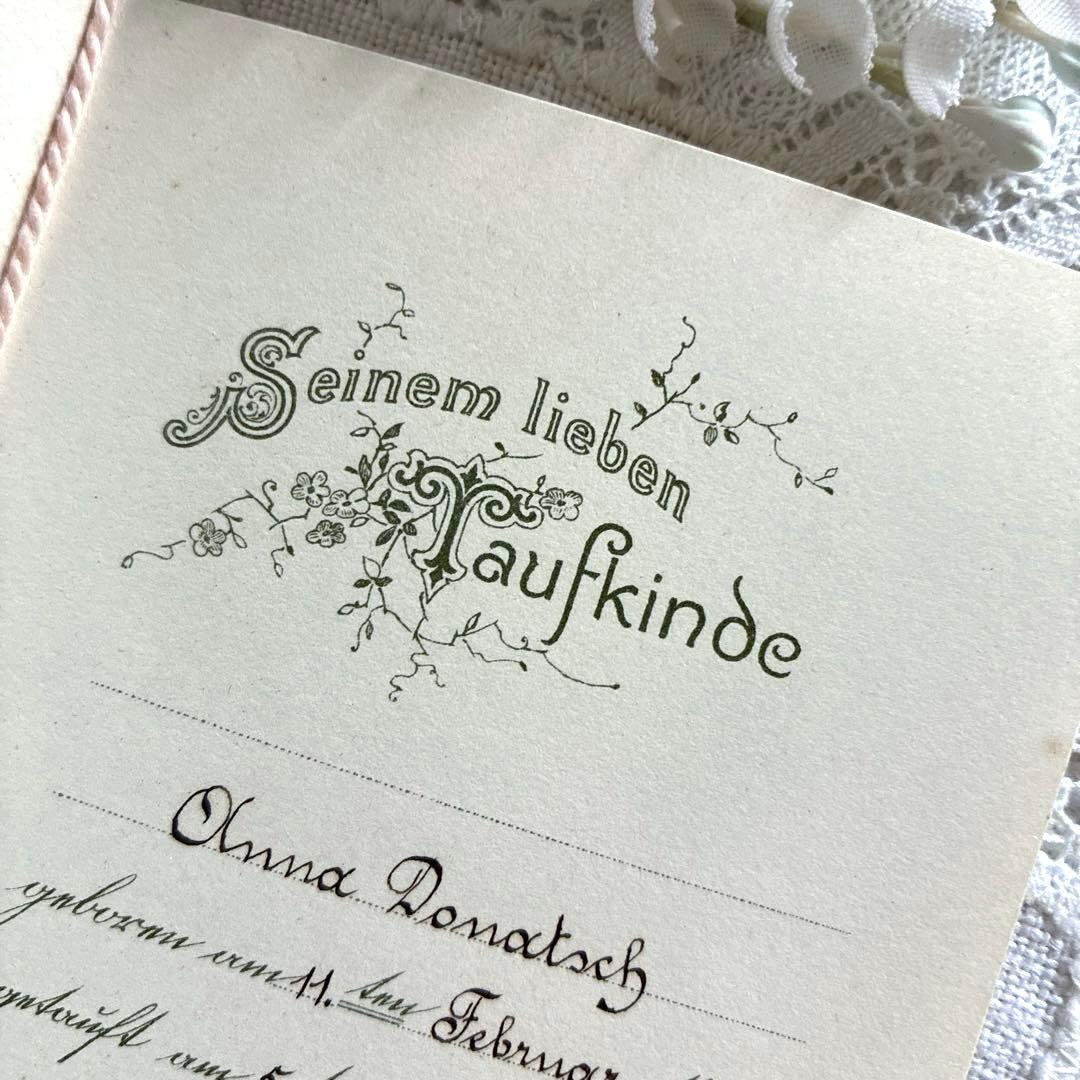 Seinem lieben
Taufkinde
Anna Donatsch
geboren am 11. ten Februar
getauft am 5.